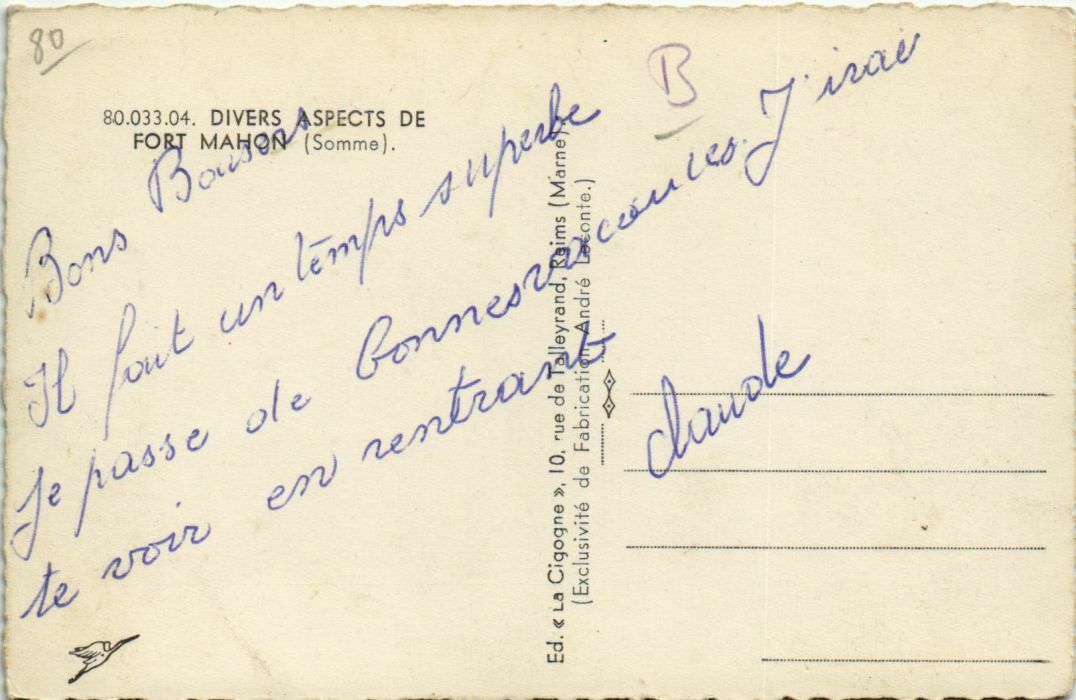 80
B
80.033.04. DIVERS ASPECTS DE
FORT MAHON (Somme).
Bons Baisers
Il fait un temps superbe
Je passe de bonnes vacances. J'irai
te voir en rentrant
Claude
Ed. « La Cigogne », 10, rue de Talleyrand, Reims (Marne)
(Exclusivité de Fabrication André Leconte.)